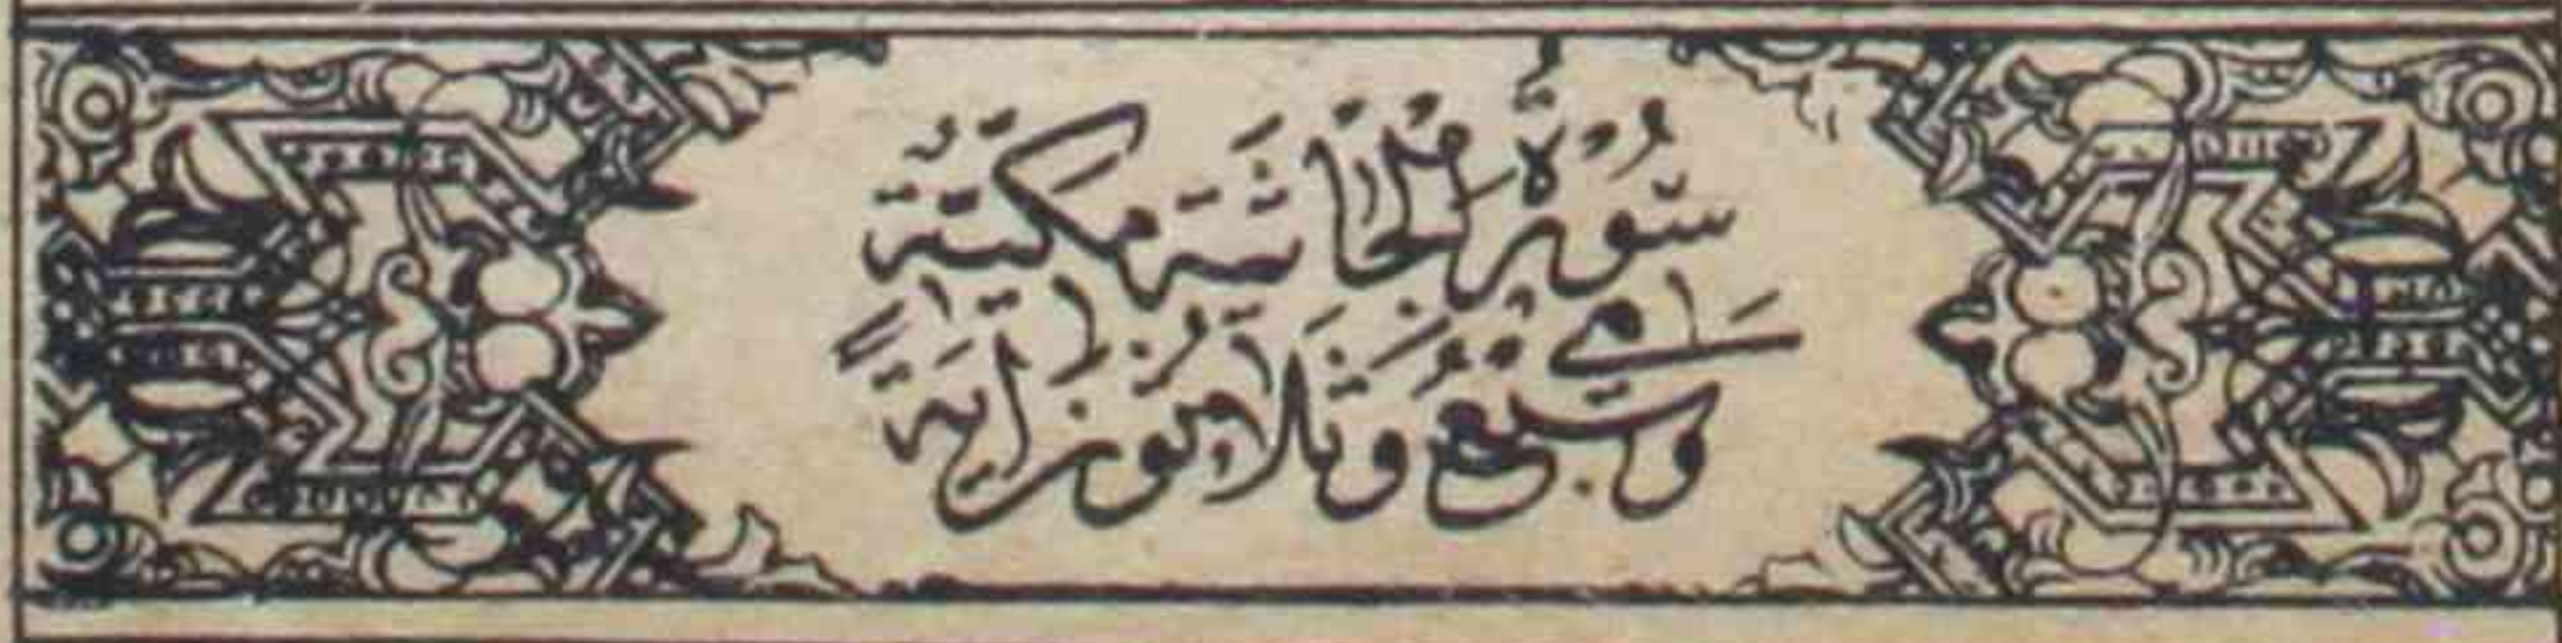 سُورَةُ الْجَاثِيَةِ مَكِّيَّةٌ
وَهِيَ سَبْعٌ وَثَلَاثُونَ اٰيَةً